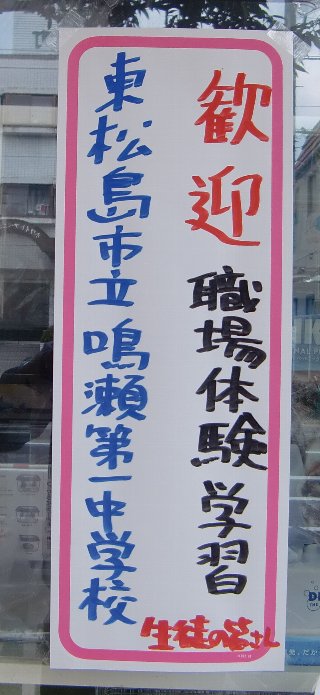 歓迎 職場体験学習
東松島市立 鳴瀬第一中学校
生徒の皆さん